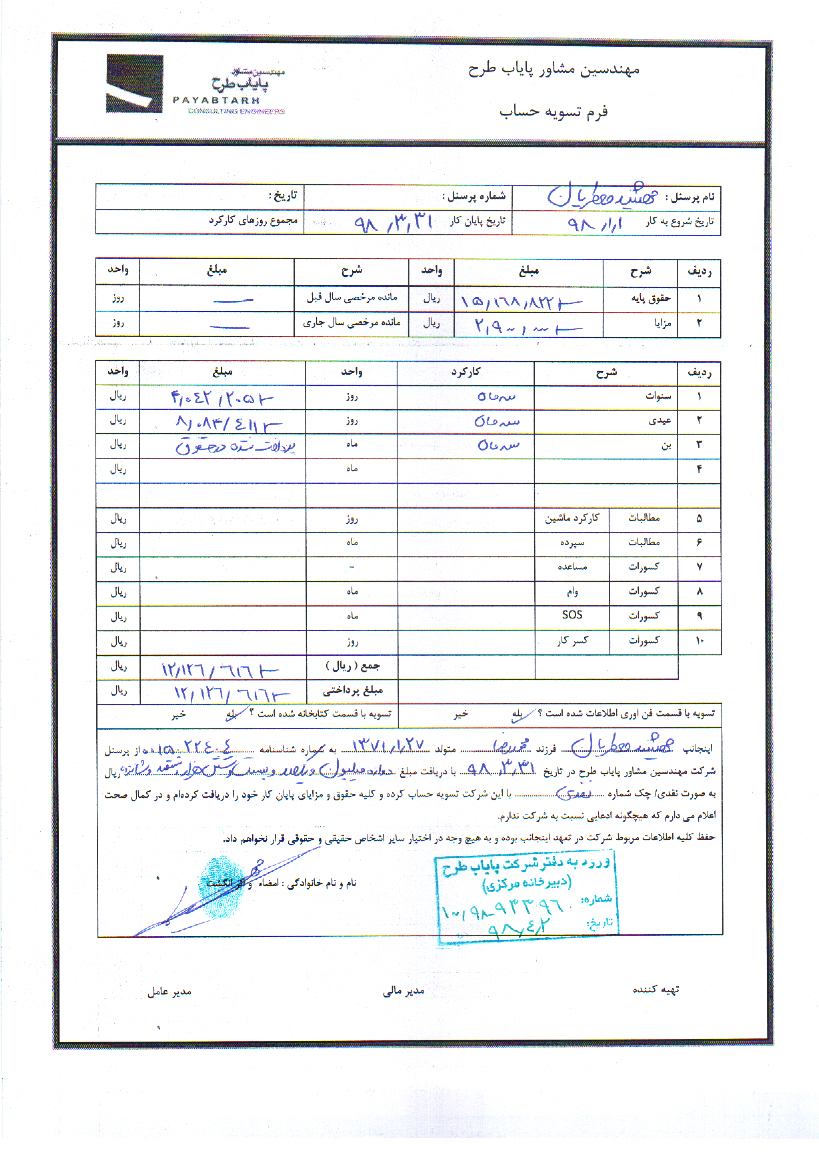 مهندسین مشاور پایاب طرح
پایاب طرح
PAYABTARH
CONSULTING ENGINEERS
مهندسین مشاور پایاب طرح
فرم تسویه حساب
نام پرسنل : شماره پرسنل : تاریخ :
تاریخ شروع به کار ۹۸/۱/۱ تاریخ پایان کار ۹۸/۳/۳۱ مجموع روزهای کارکرد
ردیف شرح مبلغ واحد شرح مبلغ واحد
۱ حقوق پایه ۱۵/۱۶۸/۸۲۲ ریال مانده مرخصی سال قبل — روز
۲ مزایا ریال مانده مرخصی سال جاری — روز
ردیف شرح کارکرد واحد مبلغ واحد
۱ سنوات سه ماه روز ۴/۰۴۲/۲۰۵ ریال
۲ عیدی سه ماه روز ۸/۰۸۴/۴۱۱ ریال
۳ بن سه ماه ماه پرداخت شده در حقوق ریال
۴ ماه ریال
۵ مطالبات کارکرد ماشین روز ریال
۶ مطالبات سپرده ماه ریال
۷ کسورات مساعده - ریال
۸ کسورات وام ماه ریال
۹ کسورات SOS ماه ریال
۱۰ کسورات کسر کار روز ریال
جمع ( ریال ) ۱۲/۱۲۶/۶۱۶ ریال
مبلغ پرداختی ۱۲/۱۲۶/۶۱۶ ریال
تسویه با قسمت فن اوری اطلاعات شده است ؟ بله خیر تسویه با قسمت کتابخانه شده است ؟ بله خیر
اینجانب فرزند محمدرضا متولد ۱۳۷۱/۱/۲۷ به شماره شناسنامه از پرسنل
شرکت مهندسین مشاور پایاب طرح در تاریخ ۹۸/۳/۳۱ با دریافت مبلغ دوازده میلیون و یکصد و بیست و شش هزار و ششصد و شانزده ریال
به صورت نقدی/ چک شماره نقدی با این شرکت تسویه حساب کرده و کلیه حقوق و مزایای پایان کار خود را دریافت کرده‌ام و در کمال صحت
اعلام می دارم که هیچگونه ادعایی نسبت به شرکت ندارم.
حفظ کلیه اطلاعات مربوط شرکت در تعهد اینجانب بوده و به هیچ وجه در اختیار سایر اشخاص حقیقی و حقوقی قرار نخواهم داد.
نام و نام خانوادگی : امضاء و اثر انگشت
ورود به دفتر شرکت پایاب طرح
(دبیرخانه مرکزی)
شماره: ۱۰۰/۹۸-۹۳۳۹۶۰
تاریخ: ۹۸/۴/۲
تهیه کننده مدیر مالی مدیر عامل